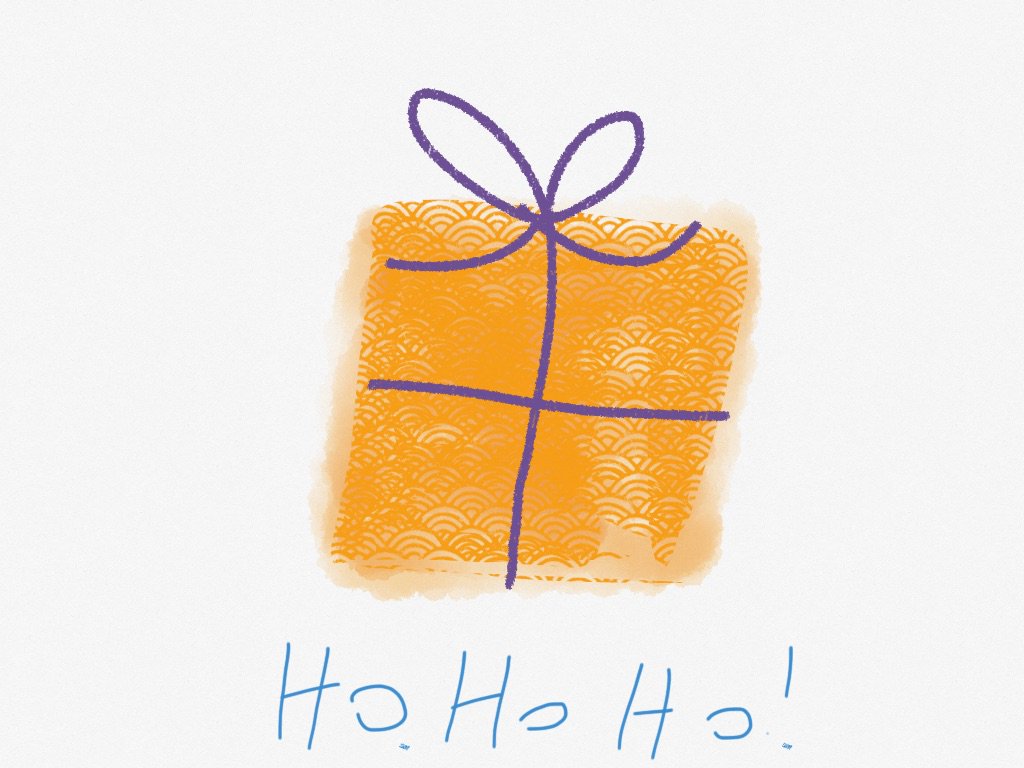 Ho. Ho Ho!